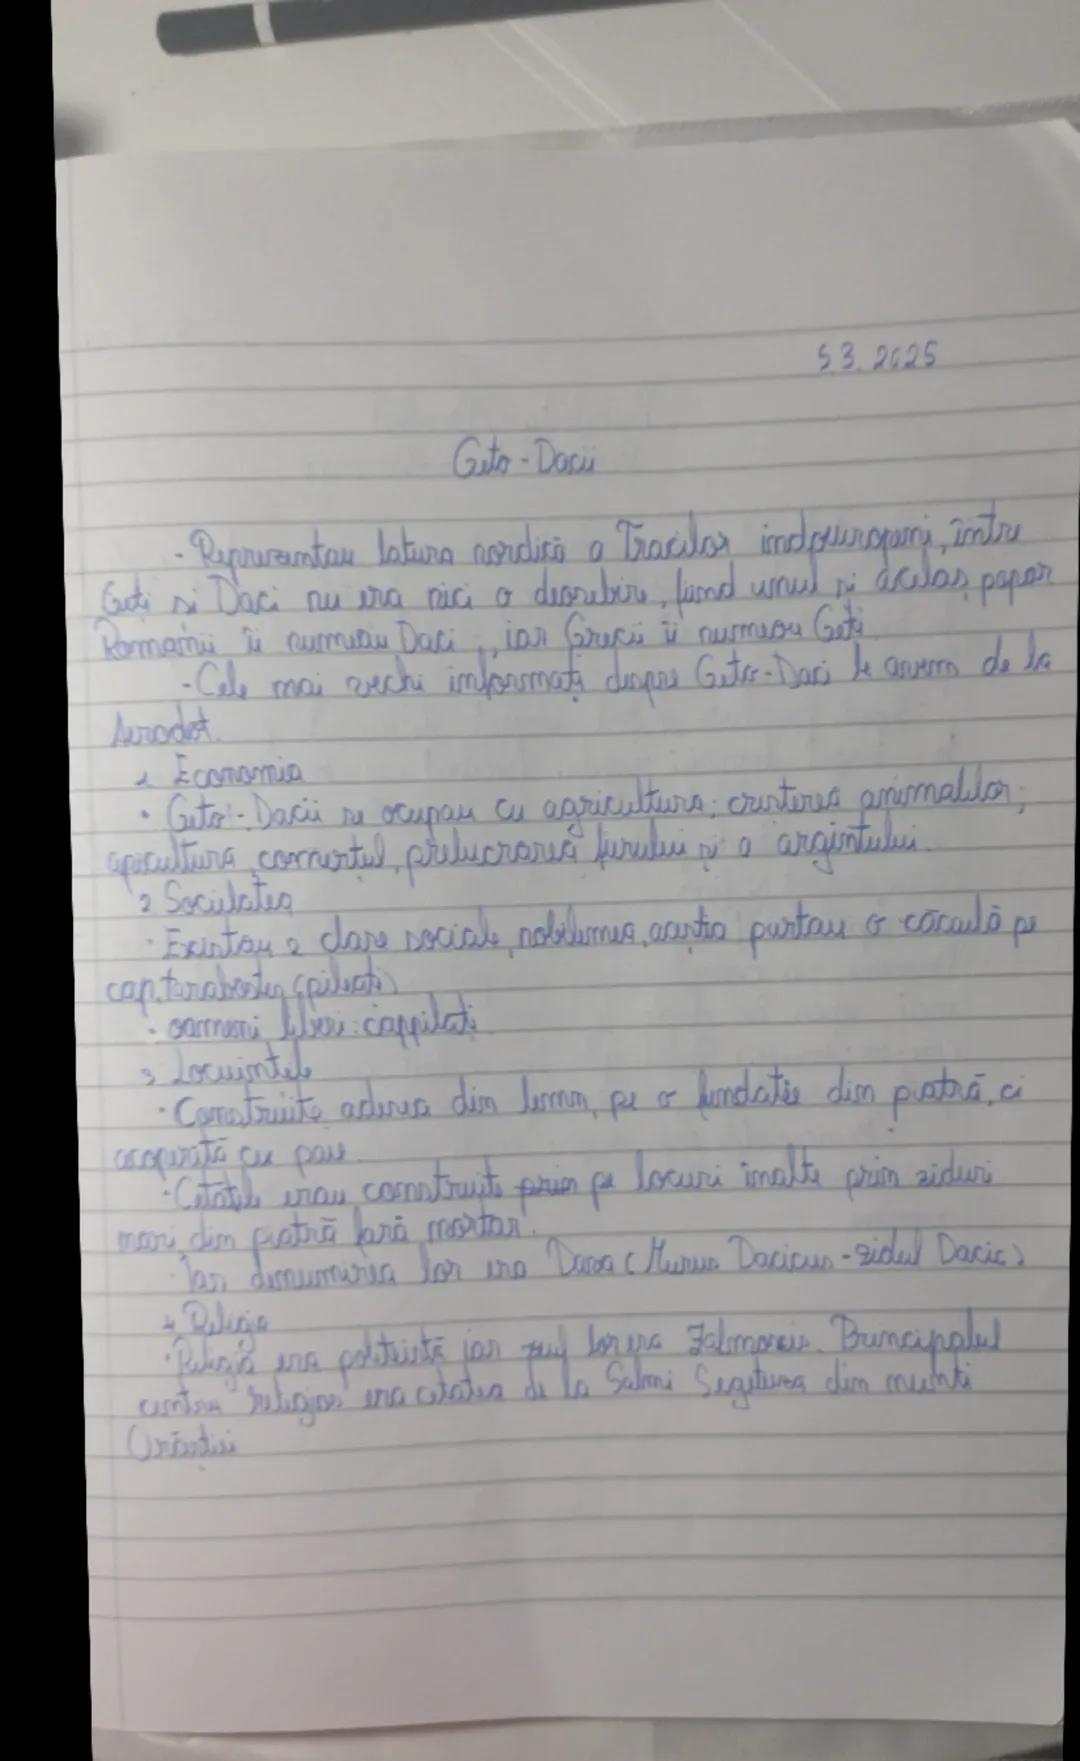 5.3.2025
Geto-Dacii
- Reprezentau latura nordică a Tracilor indpeuropeni, între
Geti si Daci nu era nici o deosebire, fiind unul si acelas popor
Romanii îi numeau Daci, iar Grecii îi numeau Geti
- Cele mai vechi informati despre Geto-Daci le avem de la
1 Economia
• Geto-Dacii se ocupau cu agricultura; cresterea animalelor;
apicultura, comertul, prelucrarea ferului si a argintului.
2 Societatea
· Existau 2 clase sociale, nobilimea, acestia purtau o căciulă pe
cap, tarabostes (pileati)
· oameni liberi: cappilati
3 Locuintele
· Construite adesea din lemn, pe o fundatie din piatră, ci
acoperită cu paie.
· Cetatile erau construite pe locuri inalte prin ziduri
mari din piatră fară mortar.
· Iar denumirea lor era Dava (Murus Dacicus - zidul Dacic)
4 Religia
· Religia era politeistă iar zeul lor era Zalmoxis. Principalul
centru religios era cetatea de la Salmi Segetuza din munti
Orăstiei